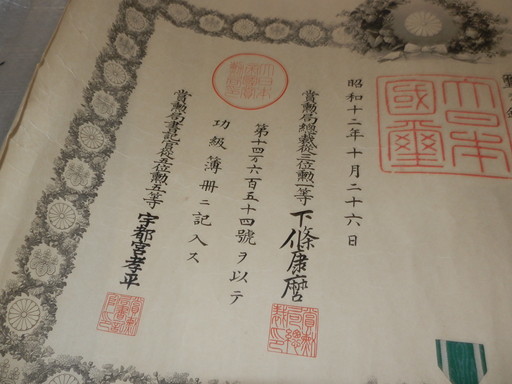 大日本
國璽
昭和十二年十月二十六日
賞勲局總裁從三位勲一等 下條康麿
賞勲局總裁印
第十四万六百五十四號ヲ以テ
功級簿册ニ記入ス
賞勲局書記官從五位勲五等 宇都宮孝平